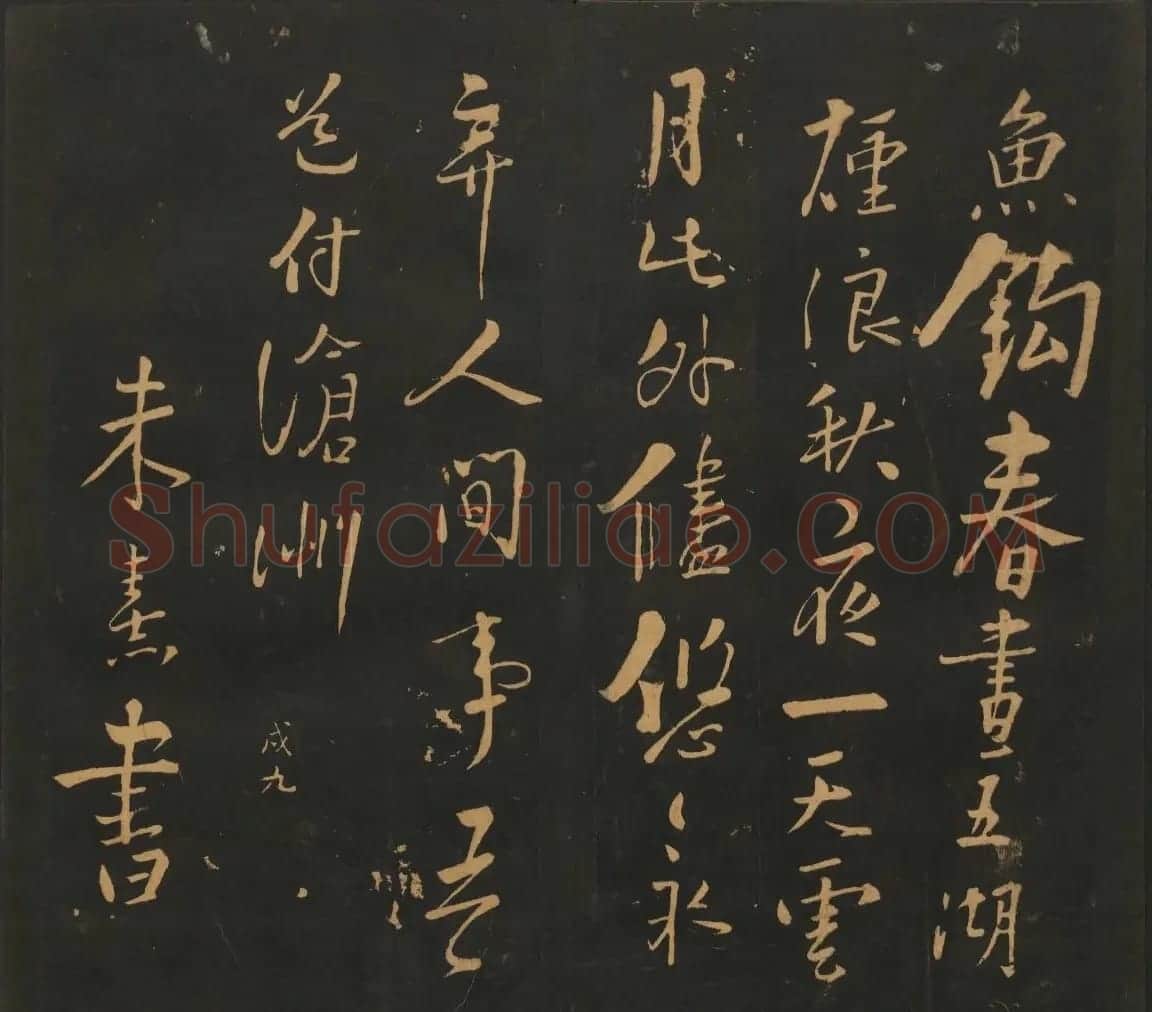 魚鉤春晝五湖
煙浪秋夜一天雲
月此外儘悠〻永
弃人間事吾
道付滄洲
戍九
朱熹書
Shufaziliao.COM